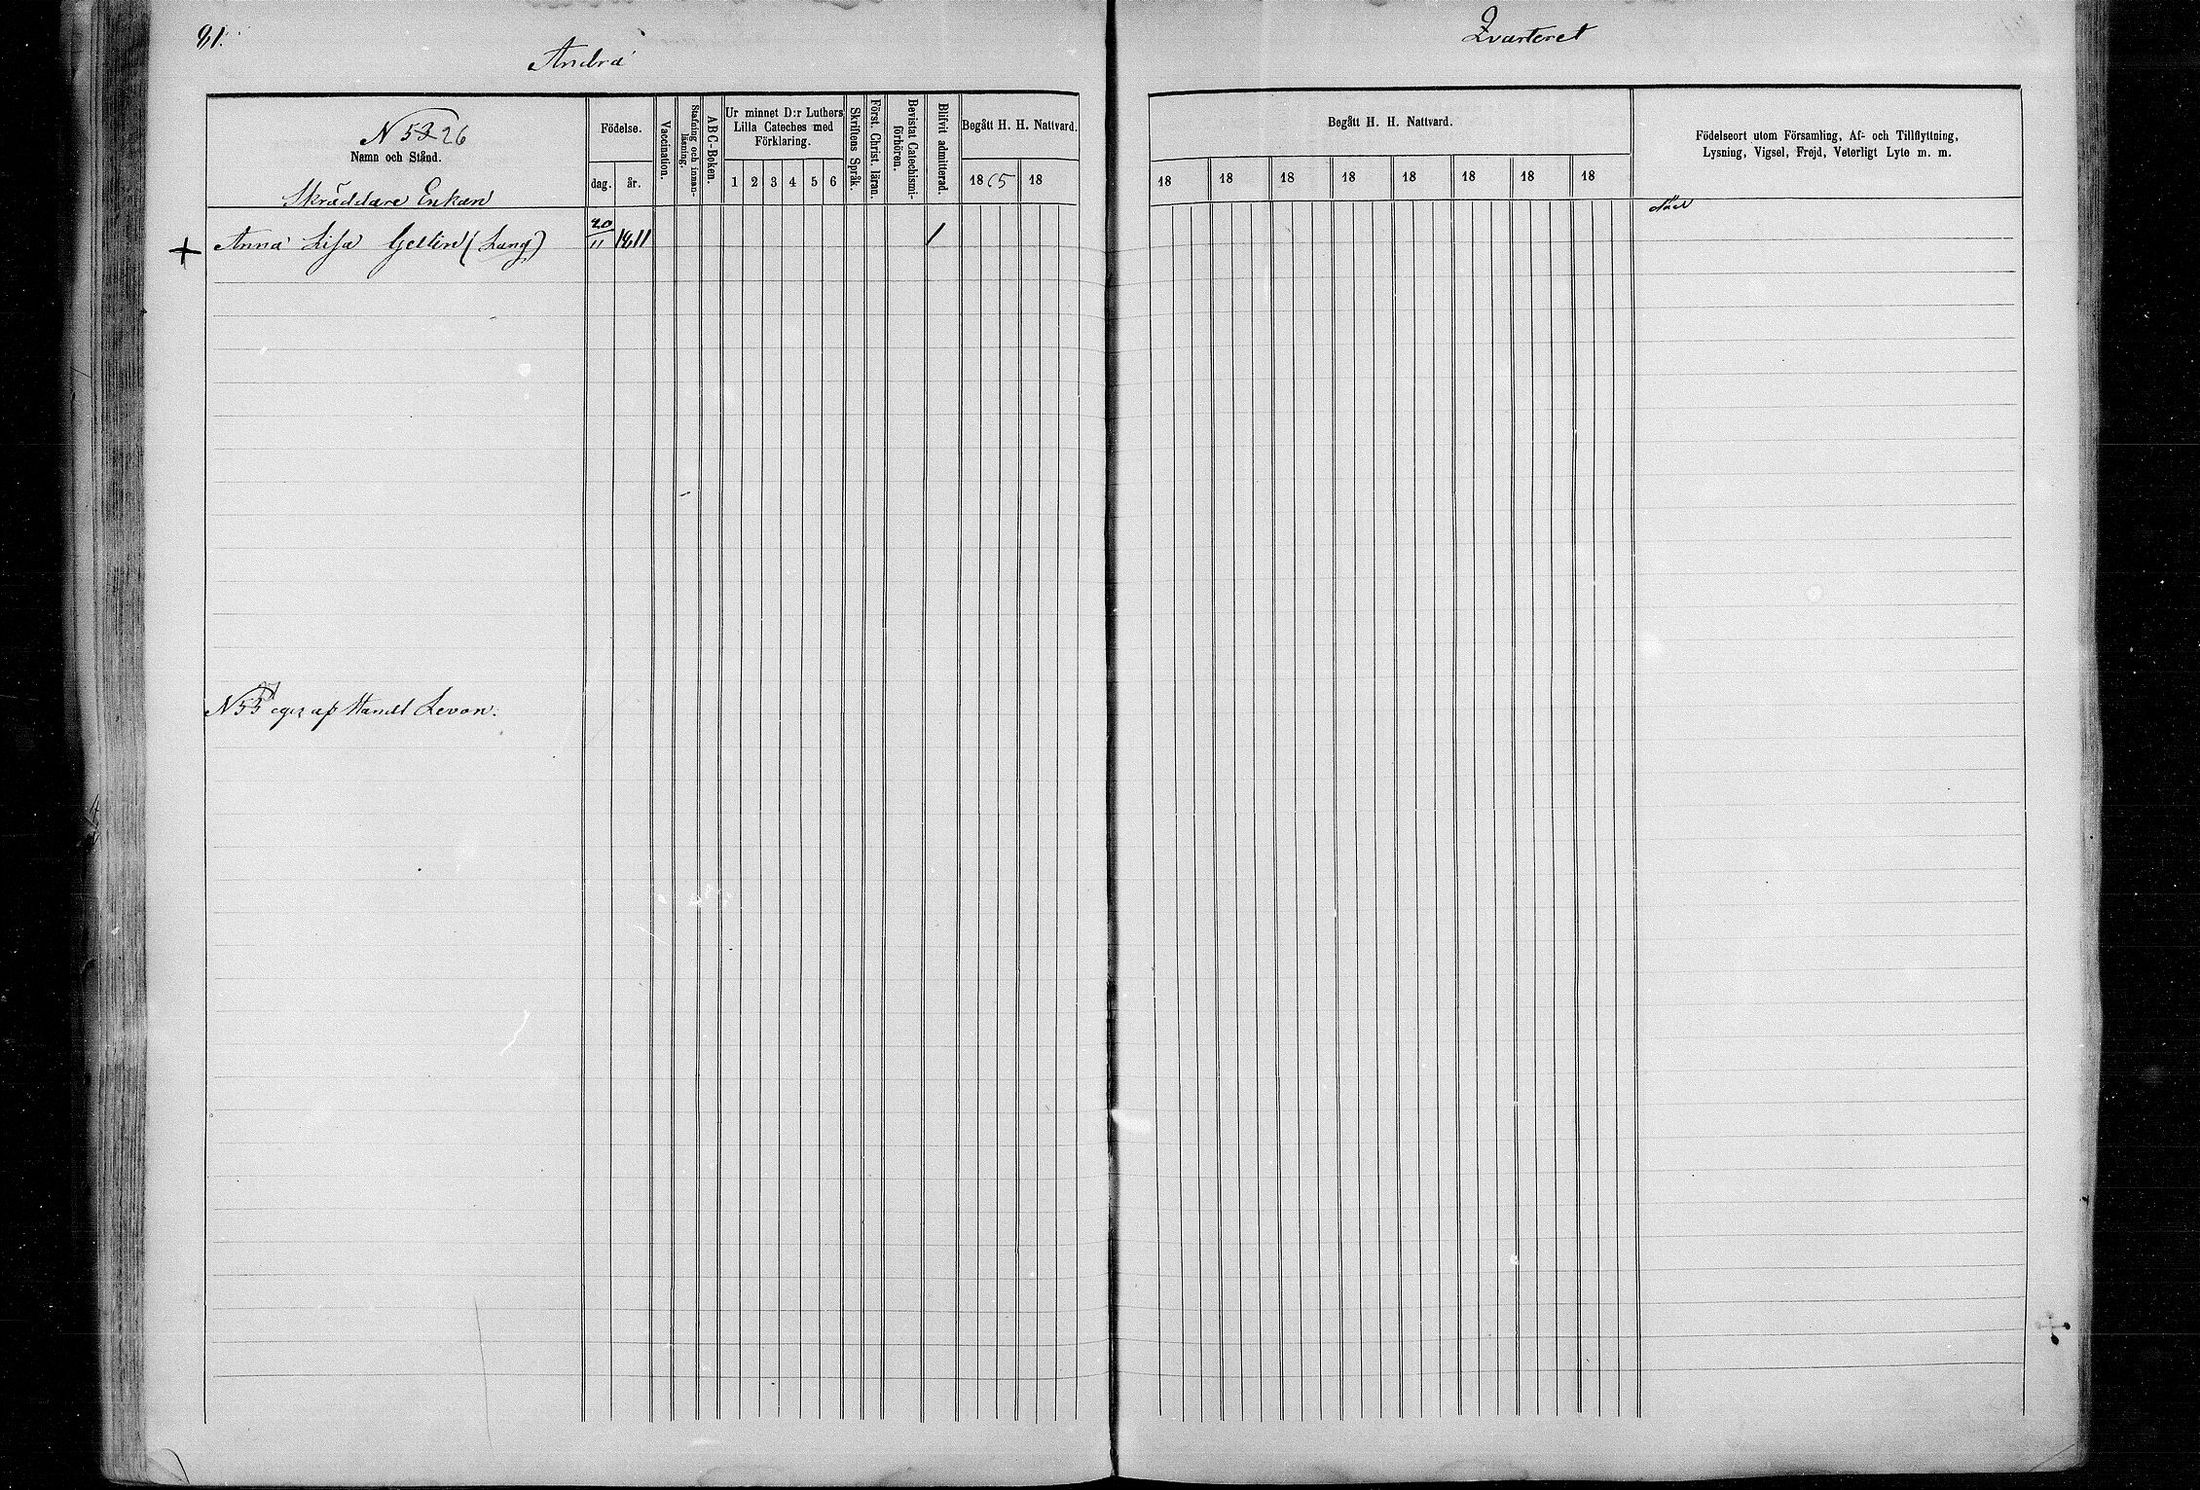 81.
Andra
Qvarteret
N 52 26
Namn och Stånd.
Födelse.
dag. år.
Vaccination.
Stafning och innanläsning.
ABC-Boken.
Ur minnet D:r Luthers
Lilla Cateches med
Förklaring.
1 2 3 4 5 6
Skriftens Språk.
Först. Christ. läran.
Bevistat Catechismiförhören.
Blifvit admitterad.
Begått H. H. Nattvard.
1865 18
Begått H. H. Nattvard.
18 18 18 18 18 18 18 18
Födelseort utom Församling, Af- och Tillflyttning,
Lysning, Vigsel, Frejd, Veterligt Lyte m. m.
Skräddare Enkan
+ Anna Lisa Gellin (Lang) 20/11 1811 /
N 53 eges af Handl Levon.